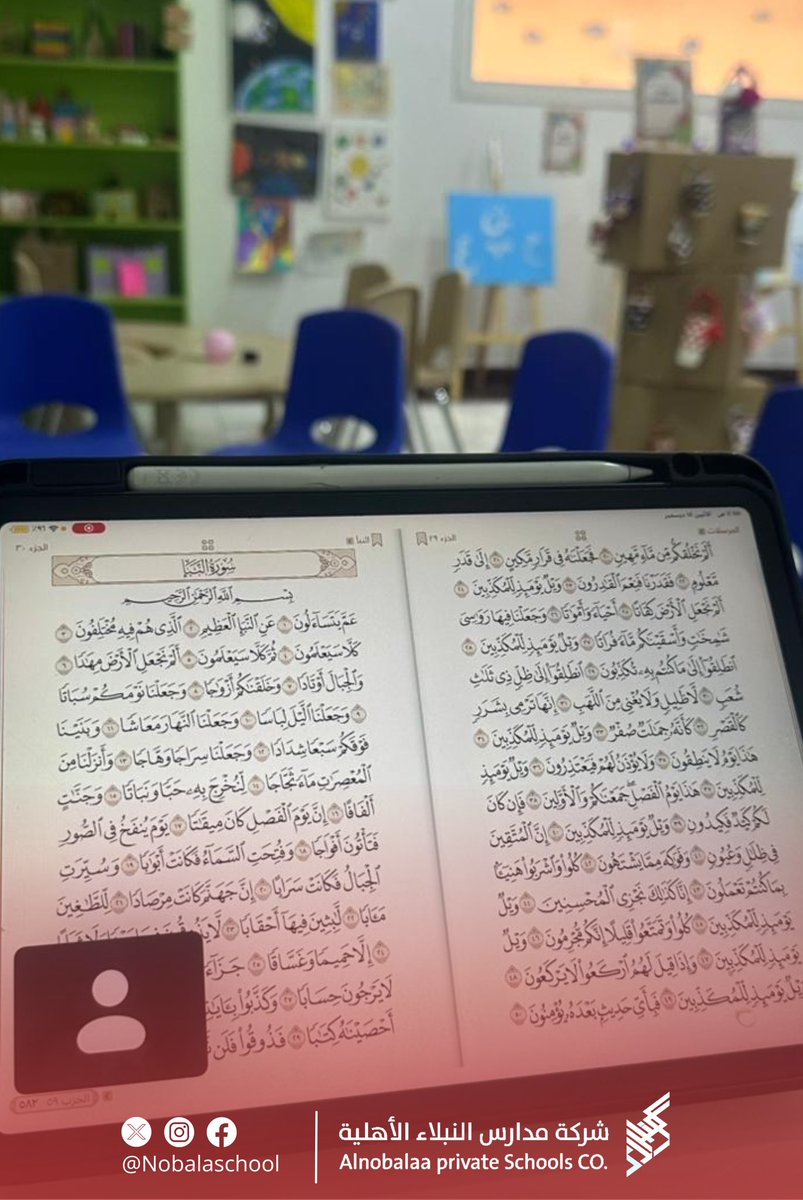 المرسلات
الجزء ٢٩
أَلَمْ نَخْلُقكُّم مِّن مَّآءٍ مَّهِينٍ ٢٠ فَجَعَلْنَٰهُ فِى قَرَارٍ مَّكِينٍ ٢١ إِلَىٰ قَدَرٍ
مَّعْلُومٍ ٢٢ فَقَدَرْنَا فَنِعْمَ ٱلْقَٰدِرُونَ ٢٣ وَيْلٌ يَوْمَئِذٍ لِّلْمُكَذِّبِينَ ٢٤
أَلَمْ نَجْعَلِ ٱلْأَرْضَ كِفَاتًا ٢٥ أَحْيَآءً وَأَمْوَٰتًا ٢٦ وَجَعَلْنَا فِيهَا رَوَٰسِىَ
شَٰمِخَٰتٍ وَأَسْقَيْنَٰكُم مَّآءً فُرَاتًا ٢٧ وَيْلٌ يَوْمَئِذٍ لِّلْمُكَذِّبِينَ ٢٨
ٱنطَلِقُوٓا۟ إِلَىٰ مَا كُنتُم بِهِۦ تُكَذِّبُونَ ٢٩ ٱنطَلِقُوٓا۟ إِلَىٰ ظِلٍّ ذِى ثَلَٰثِ
شُعَبٍ ٣٠ لَّا ظَلِيلٍ وَلَا يُغْنِى مِنَ ٱللَّهَبِ ٣١ إِنَّهَا تَرْمِى بِشَرَرٍ
كَٱلْقَصْرِ ٣٢ كَأَنَّهُۥ جِمَٰلَتٌ صُفْرٌ ٣٣ وَيْلٌ يَوْمَئِذٍ لِّلْمُكَذِّبِينَ ٣٤
هَٰذَا يَوْمُ لَا يَنطِقُونَ ٣٥ وَلَا يُؤْذَنُ لَهُمْ فَيَعْتَذِرُونَ ٣٦ وَيْلٌ يَوْمَئِذٍ
لِّلْمُكَذِّبِينَ ٣٧ هَٰذَا يَوْمُ ٱلْفَصْلِ جَمَعْنَٰكُمْ وَٱلْأَوَّلِينَ ٣٨ فَإِن كَانَ
لَكُمْ كَيْدٌ فَكِيدُونِ ٣٩ وَيْلٌ يَوْمَئِذٍ لِّلْمُكَذِّبِينَ ٤٠ إِنَّ ٱلْمُتَّقِينَ
فِى ظِلَٰلٍ وَعُيُونٍ ٤١ وَفَوَٰكِهَ مِمَّا يَشْتَهُونَ ٤٢ كُلُوا۟ وَٱشْرَبُوا۟ هَنِيٓـًٔۢا
بِمَا كُنتُمْ تَعْمَلُونَ ٤٣ إِنَّا كَذَٰلِكَ نَجْزِى ٱلْمُحْسِنِينَ ٤٤ وَيْلٌ
يَوْمَئِذٍ لِّلْمُكَذِّبِينَ ٤٥ كُلُوا۟ وَتَمَتَّعُوا۟ قَلِيلًا إِنَّكُم مُّجْرِمُونَ ٤٦ وَيْلٌ
يَوْمَئِذٍ لِّلْمُكَذِّبِينَ ٤٧ وَإِذَا قِيلَ لَهُمُ ٱرْكَعُوا۟ لَا يَرْكَعُونَ ٤٨
وَيْلٌ يَوْمَئِذٍ لِّلْمُكَذِّبِينَ ٤٩ فَبِأَىِّ حَدِيثٍۭ بَعْدَهُۥ يُؤْمِنُونَ ٥٠
٪٩٦
النبأ
الجزء ٣٠
سُورَةُ النَّبَإِ
بِسْمِ ٱللَّهِ ٱلرَّحْمَٰنِ ٱلرَّحِيمِ
عَمَّ يَتَسَآءَلُونَ ١ عَنِ ٱلنَّبَإِ ٱلْعَظِيمِ ٢ ٱلَّذِى هُمْ فِيهِ مُخْتَلِفُونَ ٣
كَلَّا سَيَعْلَمُونَ ٤ ثُمَّ كَلَّا سَيَعْلَمُونَ ٥ أَلَمْ نَجْعَلِ ٱلْأَرْضَ مِهَٰدًا ٦
وَٱلْجِبَالَ أَوْتَادًا ٧ وَخَلَقْنَٰكُمْ أَزْوَٰجًا ٨ وَجَعَلْنَا نَوْمَكُمْ سُبَاتًا
٩ وَجَعَلْنَا ٱلَّيْلَ لِبَاسًا ١٠ وَجَعَلْنَا ٱلنَّهَارَ مَعَاشًا ١١ وَبَنَيْنَا
فَوْقَكُمْ سَبْعًا شِدَادًا ١٢ وَجَعَلْنَا سِرَاجًا وَهَّاجًا ١٣ وَأَنزَلْنَا مِنَ
ٱلْمُعْصِرَٰتِ مَآءً ثَجَّاجًا ١٤ لِّنُخْرِجَ بِهِۦ حَبًّا وَنَبَاتًا ١٥ وَجَنَّٰتٍ
أَلْفَافًا ١٦ إِنَّ يَوْمَ ٱلْفَصْلِ كَانَ مِيقَٰتًا ١٧ يَوْمَ يُنفَخُ فِى ٱلصُّورِ
فَتَأْتُونَ أَفْوَاجًا ١٨ وَفُتِحَتِ ٱلسَّمَآءُ فَكَانَتْ أَبْوَٰبًا ١٩ وَسُيِّرَتِ
ٱلْجِبَالُ فَكَانَتْ سَرَابًا ٢٠ إِنَّ جَهَنَّمَ كَانَتْ مِرْصَادًا ٢١ لِّلطَّٰغِينَ
مَـَٔابًا ٢٢ لَّٰبِثِينَ فِيهَآ أَحْقَابًا ٢٣
٢٤ إِلَّا حَمِيمًا وَغَسَّاقًا ٢٥ جَزَآءً
لَا يَرْجُونَ حِسَابًا ٢٧ وَكَذَّبُوا۟
أَحْصَيْنَٰهُ كِتَٰبًا ٢٩ فَذُوقُوا۟ فَلَن
الحزب ٥٩
٥٨٢
شركة مدارس النبلاء الأهلية
Alnobalaa private Schools CO.
@Nobalaschool